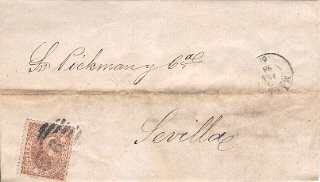 Sr. Pickman y Cª
Sevilla